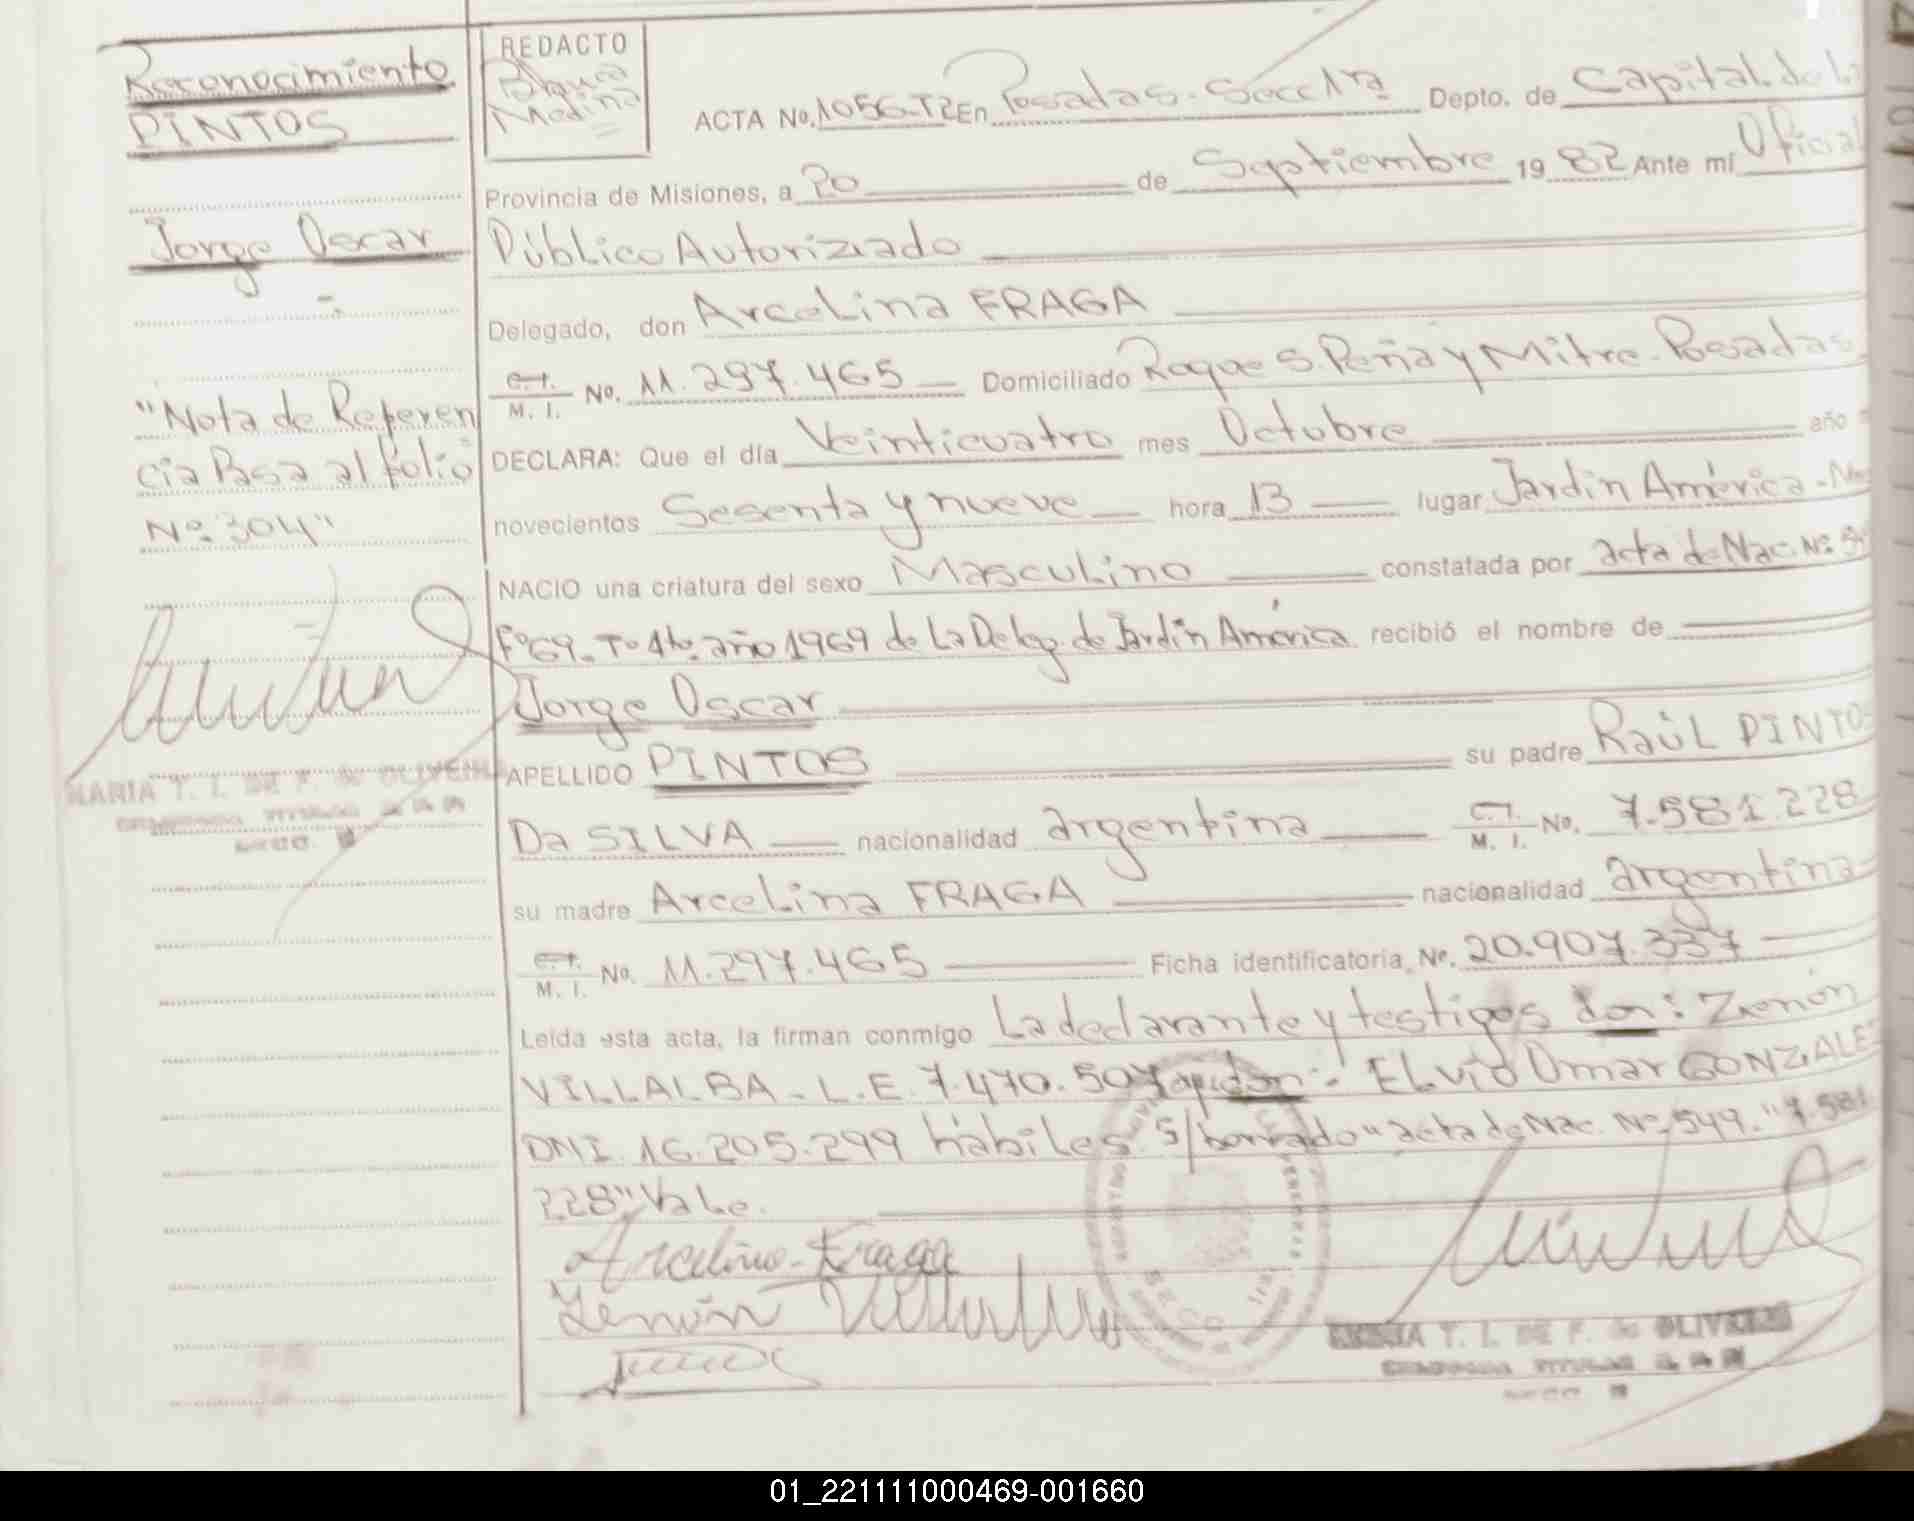 Reconocimiento
PINTOS
Jorge Oscar
"Nota de Referen
cia Pasa al folio
Nº 304"
MARIA T. I. DE F. de OLIVEIRA
REDACTO
Blanca
Medina
ACTA No. 1056-T2 En Posadas - Secc 1ra Depto. de Capital de la
Provincia de Misiones, a 20 de Septiembre 1982 Ante mí Oficial
Público Autorizado
Delegado, don Arcelina FRAGA
C.I. M. I. No. 11.297.465 Domiciliado Roque S. Peña y Mitre - Posadas
DECLARA: Que el día Veinticuatro mes Octubre año
novecientos Sesenta y nueve hora 13 lugar Jardín América -
NACIO una criatura del sexo Masculino constatada por acta de Nac. Nº
Fº 69 - Tº 1to. año 1969 de La Deleg. de Jardín América recibió el nombre de
Jorge Oscar
APELLIDO PINTOS su padre Raúl PINTOS
Da SILVA nacionalidad argentina C.I. M. I. No. 7.581.228
su madre Arcelina FRAGA nacionalidad argentina
C.I. M. I. No. 11.297.465 Ficha identificatoria No. 20.907.337
Leída esta acta, la firman conmigo La declarante y testigos don: Zenón
VILLALBA - L.E. 7.470.507 y don: Elvio Omar GONZALEZ
DNI. 16.205.299 hábiles. S/borrado "acta de Nac. Nº 549. "7.581.
228" Vale.
Arcelina Fraga
Zenón Villalba
MARIA T. I. DE F. de OLIVEIRA
01_221111000469-001660